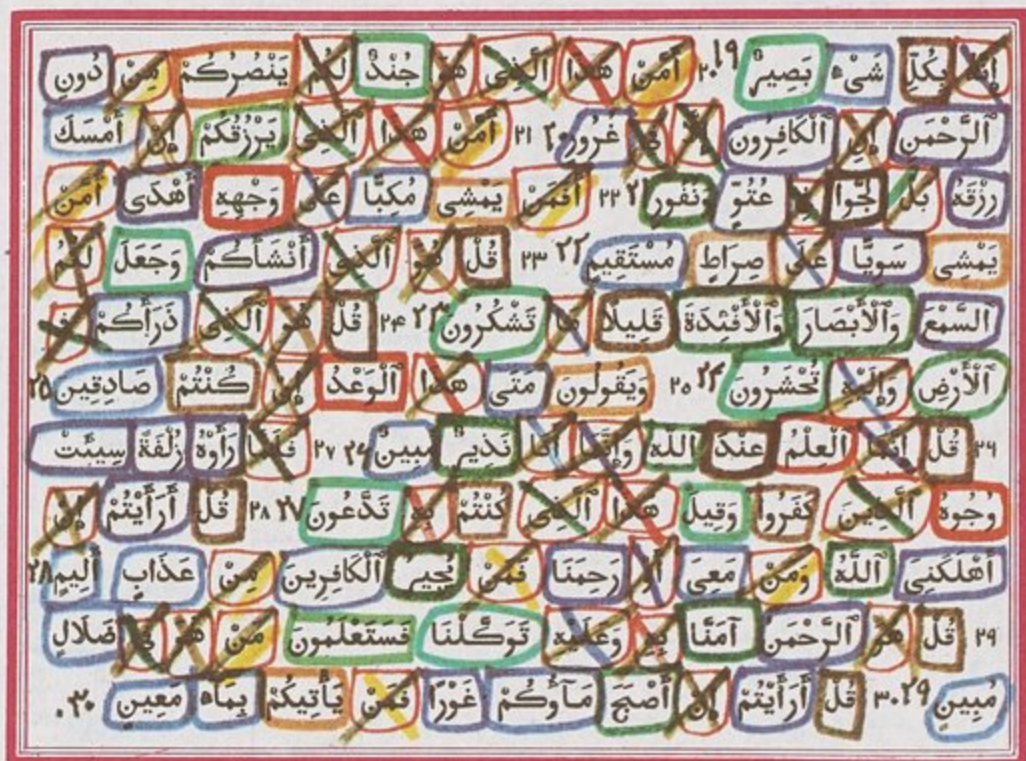 إِنَّهُ بِكُلِّ شَىْءٍ بَصِيرٌ ۱۹ ۲۰ أَمَّنْ هٰذَا ٱلَّذِى هُوَ جُنْدٌ لَكُمْ يَنْصُرُكُمْ مِنْ دُونِ
ٱلرَّحْمَنِ إِنِ ٱلْكَافِرُونَ إِلَّا فِى غُرُورٍ ۲۰ ۲۱ أَمَّنْ هٰذَا ٱلَّذِى يَرْزُقُكُمْ إِنْ أَمْسَكَ
رِزْقَهُ بَلْ لَجُّوا فِى عُتُوٍّ وَنُفُورٍ ۲۱ ۲۲ أَفَمَنْ يَمْشِى مُكِبًّا عَلَى وَجْهِهِ أَهْدَى أَمَّنْ
يَمْشِى سَوِيًّا عَلَى صِرَاطٍ مُسْتَقِيمٍ ۲۲ ۲۳ قُلْ هُوَ ٱلَّذِى أَنْشَأَكُمْ وَجَعَلَ لَكُمُ
ٱلسَّمْعَ وَٱلْأَبْصَارَ وَٱلْأَفْئِدَةَ قَلِيلًا مَا تَشْكُرُونَ ۲۳ ۲۴ قُلْ هُوَ ٱلَّذِى ذَرَأَكُمْ فِى
ٱلْأَرْضِ وَإِلَيْهِ تُحْشَرُونَ ۲۴ ۲۵ وَيَقُولُونَ مَتَى هٰذَا ٱلْوَعْدُ إِنْ كُنْتُمْ صَادِقِينَ ۲۵
۲۶ قُلْ إِنَّمَا ٱلْعِلْمُ عِنْدَ ٱللهِ وَإِنَّمَا أَنَا نَذِيرٌ مُبِينٌ ۲۶ ۲۷ فَلَمَّا رَأَوْهُ زُلْفَةً سِيئَتْ
وُجُوهُ ٱلَّذِينَ كَفَرُوا وَقِيلَ هٰذَا ٱلَّذِى كُنْتُمْ بِهِ تَدَّعُونَ ۲۷ ۲۸ قُلْ أَرَأَيْتُمْ إِنْ
أَهْلَكَنِىَ ٱللَّهُ وَمَنْ مَعِىَ أَوْ رَحِمَنَا فَمَنْ يُجِيرُ ٱلْكَافِرِينَ مِنْ عَذَابٍ أَلِيمٍ ۲۸
۲۹ قُلْ هُوَ ٱلرَّحْمَنُ آمَنَّا بِهِ وَعَلَيْهِ تَوَكَّلْنَا فَسَتَعْلَمُونَ مَنْ هُوَ فِى ضَلَالٍ
مُبِينٍ ۲۹ ۳۰ قُلْ أَرَأَيْتُمْ إِنْ أَصْبَحَ مَآؤُكُمْ غَوْرًا فَمَنْ يَأْتِيكُمْ بِمَاءٍ مَعِينٍ ۳۰